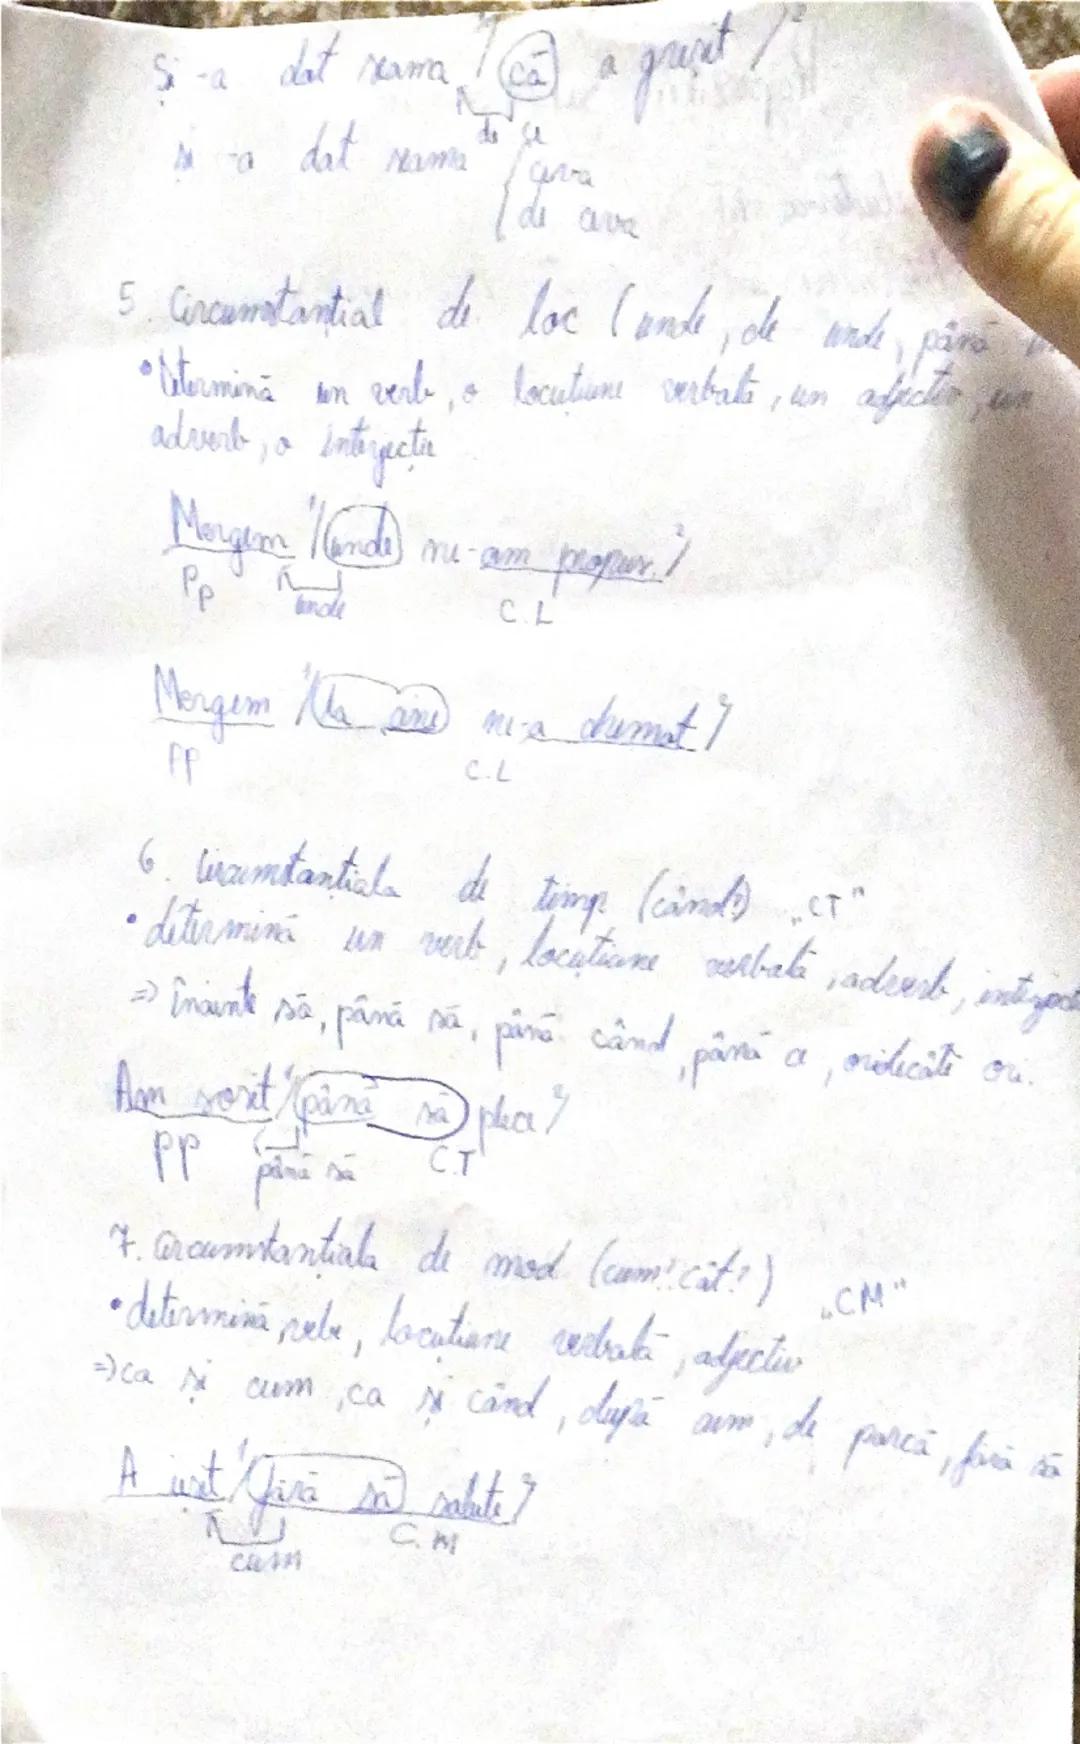 Și-a dat seama 1/ că a greșit /2
de ce
și-a dat seama ceva
de ceva
5. Circumstanțial de loc (unde, de unde, până
• Determină un verb, o locuțiune verbală, un adjectiv, un
adverb, o interjecție
Mergem 1/ unde ne-am propus. 2/
PP unde C.L
Mergem 1/ la cine ne-a chemat 2/
PP C.L
6. Circumstanțiala de timp (când?) „CT"
• determină un verb, locuțiune verbală, adverb, interjecț
=> înainte să, până să, până când, până a, oridecâte ori.
Am sosit 1/ până să plece 2/
PP până să C.T
7. Circumstanțiala de mod (cum? cât?) „CM"
• determină, verbe, locuțiune verbală, adjectiv
=> ca și cum, ca și când, după cum, de parcă, fără să
A ieșit 1/ fără să salute 2/
cum C.M